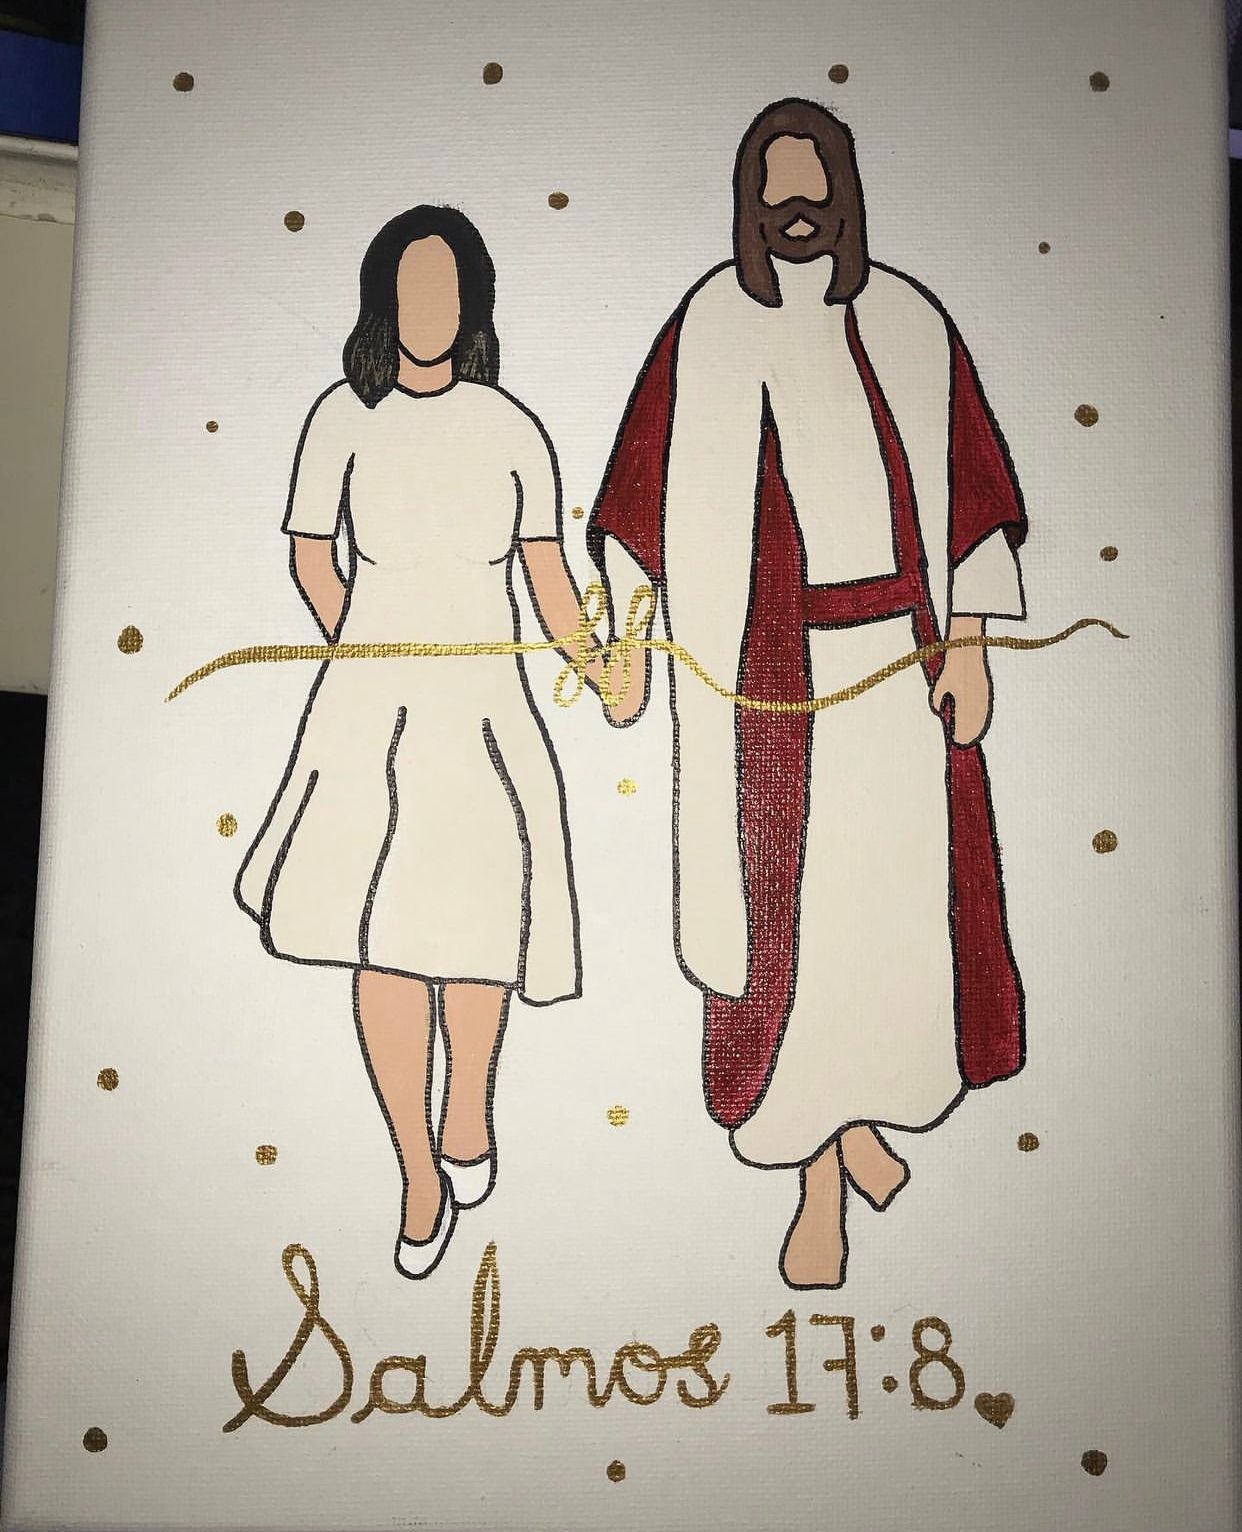 Salmos 17:8